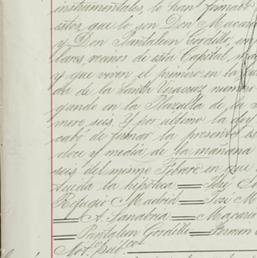 instrumentales lo han firmado
estos que lo son Don Macario
y Don Pantaleon Gordillo, em
vecinos de esta Capital,
y que viven el primero en la
da de la Santa Veracruz numero
grande en la Plazuela de la
mero seis. Y por ultimo doy
cabó de firmar la presente
doce y media, de la mañana
seis del mismo Febrero en que
tuida la hipoteca = José
Refugio Madrid = José M
= F. Sanabria = Macario
= Pantaleon Gordillo = Fermin
Not. Pubco